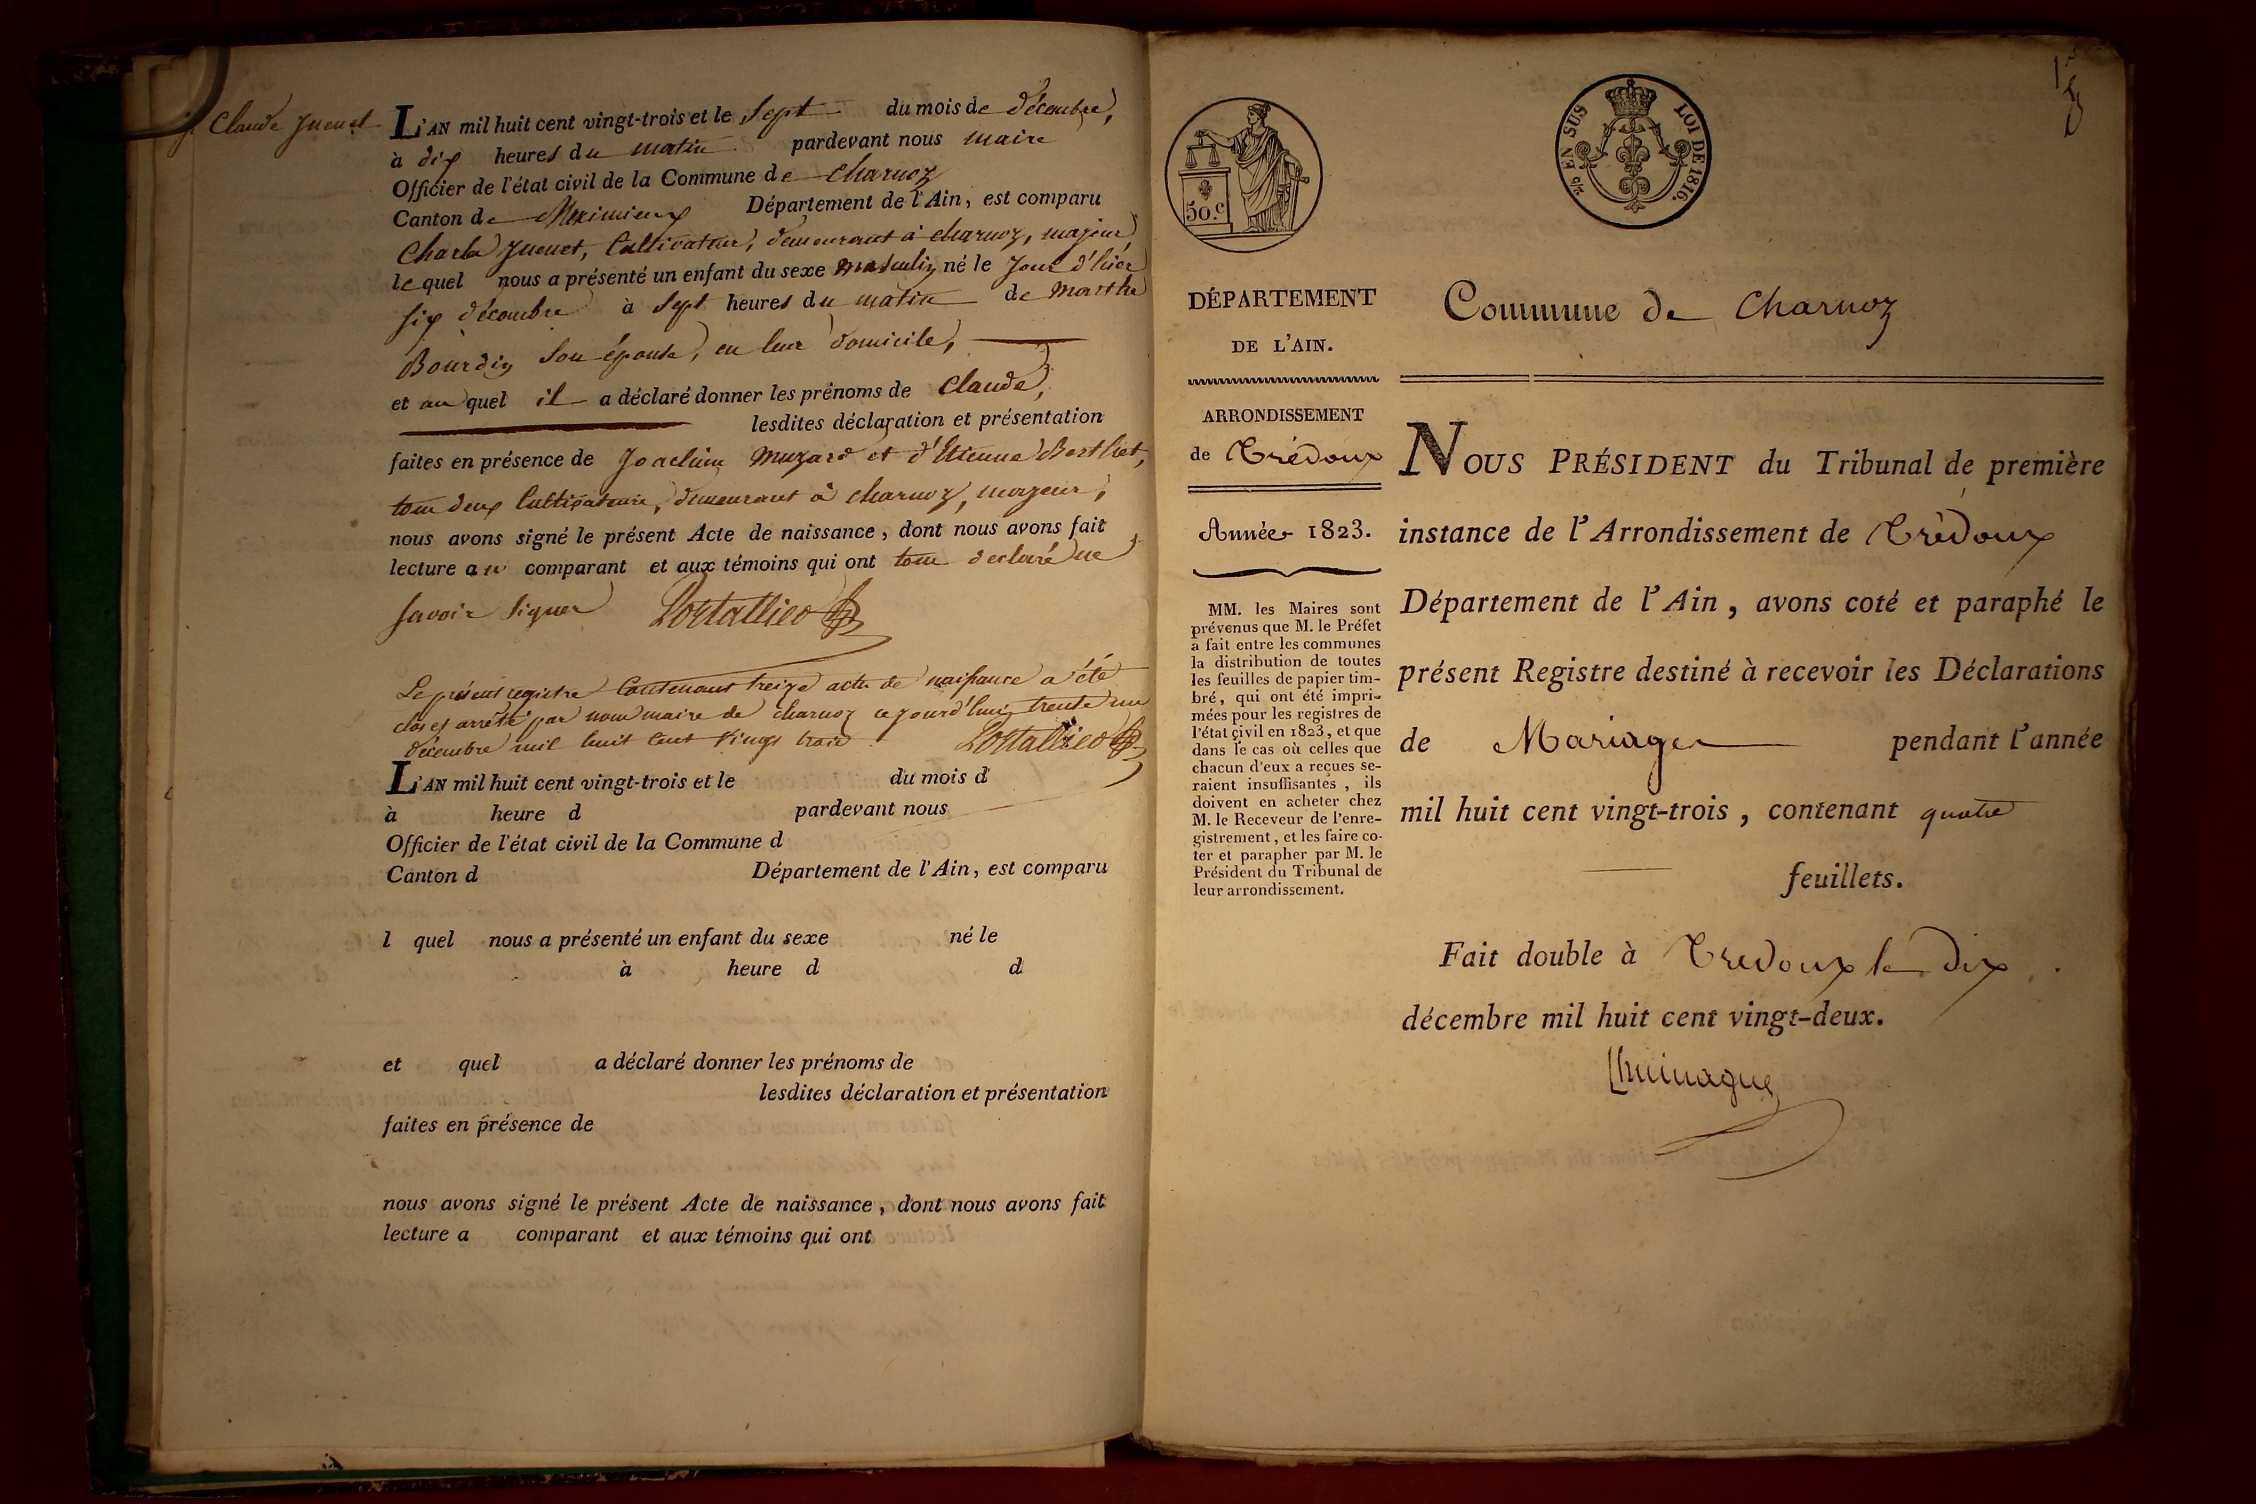 Claude Juenet
L'AN mil huit cent vingt-trois et le Sept du mois de décembre,
à dix heures du matin pardevant nous maire
Officier de l'état civil de la Commune de charnoz
Canton de Meximieux Département de l'Ain, est comparu
Charles Juenet, Cultivateur, demeurant à charnoz, majeur
le quel nous a présenté un enfant du sexe masculin né le Jour d'hier
six décembre à Sept heures du matin de Marthe
Bourdin Son épouse, en leur domicile,
et au quel il a déclaré donner les prénoms de Claude,
lesdites déclaration et présentation
faites en présence de Joachim Muzard et d'Etienne Berthet,
tous deux Cultivateurs, demeurant à charnoz, majeurs,
nous avons signé le présent Acte de naissance, dont nous avons fait
lecture au comparant et aux témoins qui ont tous déclaré ne
savoir signer Portallier
Le présent registre Contenant treize actes de naissance a été
clos et arrêté par nous maire de charnoz ce jourd'hui trente un
décembre mil huit Cent Vingt trois. Portallier
L'AN mil huit cent vingt-trois et le du mois d
à heure d pardevant nous
Officier de l'état civil de la Commune d
Canton d Département de l'Ain, est comparu
l quel nous a présenté un enfant du sexe né le
à heure d d
et quel a déclaré donner les prénoms de
lesdites déclaration et présentation
faites en présence de
nous avons signé le présent Acte de naissance, dont nous avons fait
lecture a comparant et aux témoins qui ont
50.c
EN SUS LOI DE 1816.
DÉPARTEMENT
DE L'AIN.
ARRONDISSEMENT
de Trévoux
Année 1823.
MM. les Maires sont
prévenus que M. le Préfet
a fait entre les communes
la distribution de toutes
les feuilles de papier tim-
bré, qui ont été impri-
mées pour les registres de
l'état civil en 1823, et que
dans le cas où celles que
chacun d'eux a reçues se-
raient insuffisantes, ils
doivent en acheter chez
M. le Receveur de l'enre-
gistrement, et les faire co-
ter et parapher par M. le
Président du Tribunal de
leur arrondissement.
Commune de Charnoz
NOUS PRÉSIDENT du Tribunal de première
instance de l'Arrondissement de Trévoux
Département de l'Ain, avons coté et paraphé le
présent Registre destiné à recevoir les Déclarations
de Mariages pendant l'année
mil huit cent vingt-trois, contenant quatre
feuillets.
Fait double à Trévoux le dix
décembre mil huit cent vingt-deux.